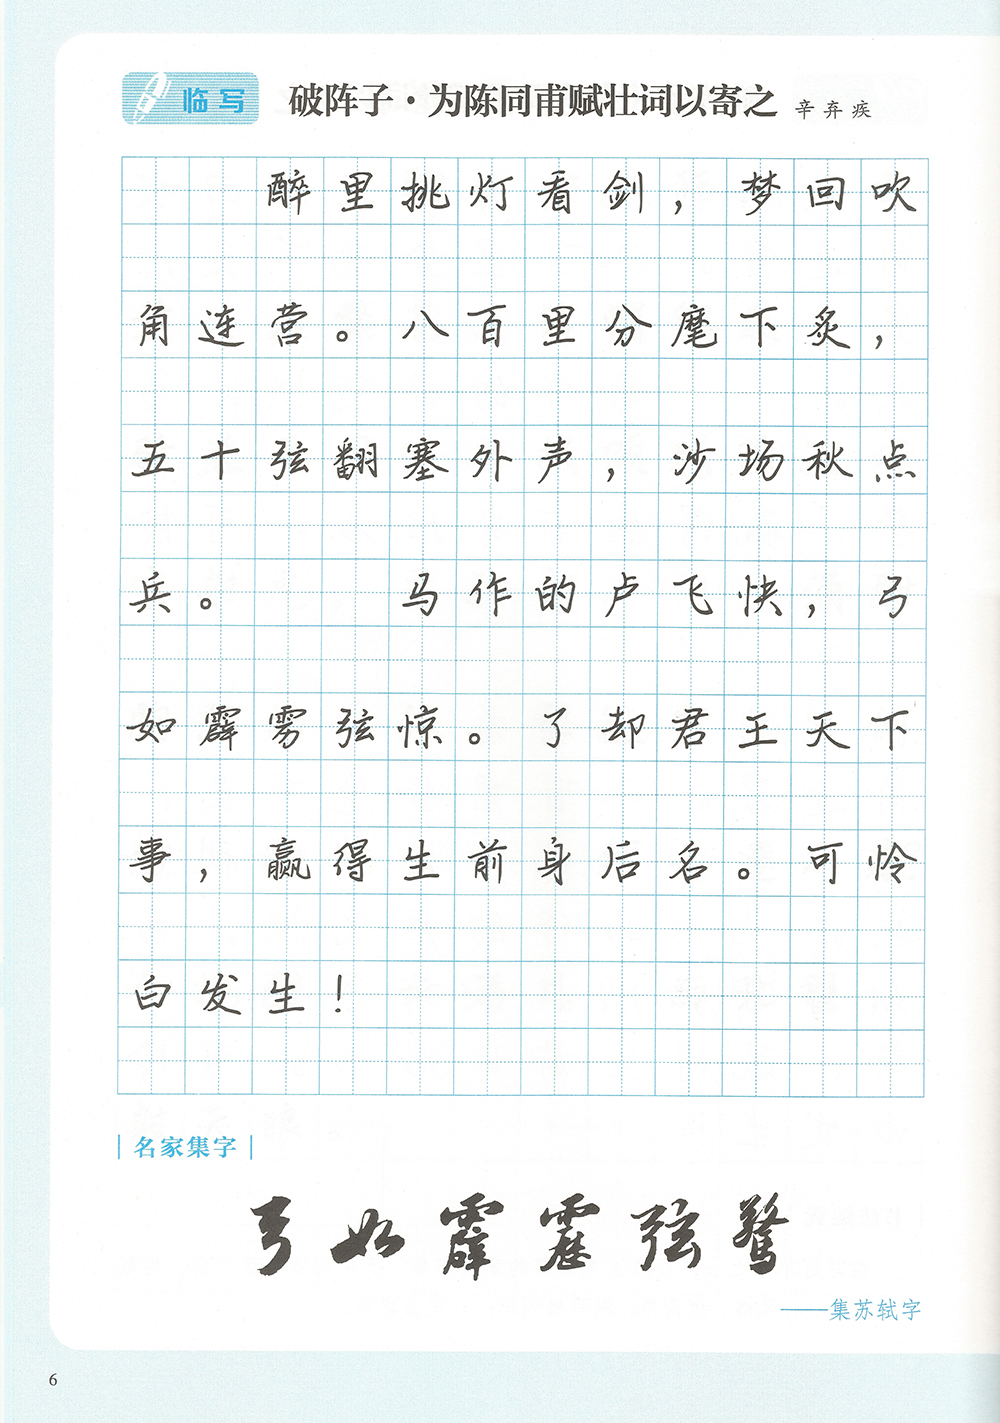 临写 破阵子·为陈同甫赋壮词以寄之 辛弃疾
醉里挑灯看剑，梦回吹
角连营。八百里分麾下炙，
五十弦翻塞外声，沙场秋点
兵。 马作的卢飞快，弓
如霹雳弦惊。了却君王天下
事，赢得生前身后名。可怜
白发生！
名家集字
弓如霹靂弦驚
——集苏轼字
6